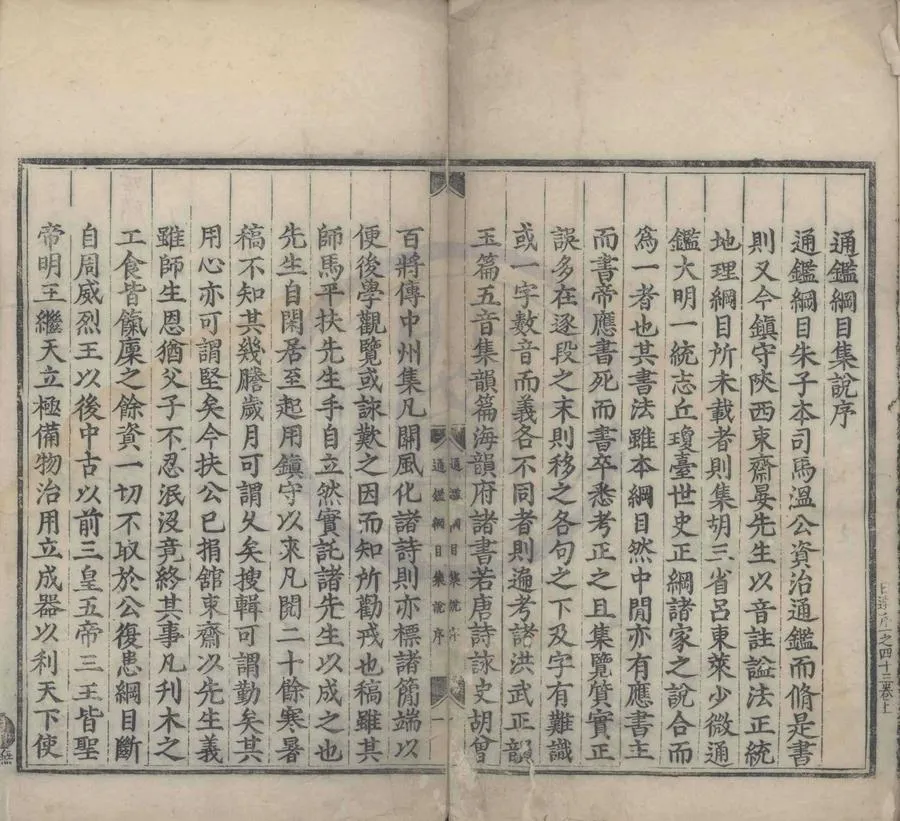 通鑑綱目集說序
通鑑綱目朱子本司馬溫公資治通鑑而脩是書
則又今鎮守陝西東齋晏先生以音註謚法正統
地理綱目所未載者則集胡三省呂東萊少微通
鑑大明一統志丘瓊臺世史正綱諸家之說合而
爲一者也其書法雖本綱目然中閒亦有應書主
而書帝應書死而書卒悉考正之且集覽質實正
誤多在逐段之末則移之各句之下及字有難識
或一字數音而義各不同者則遍考諸洪武正韻
玉篇五音集韻篇海韻府諸書若唐詩詠史胡曾
百將傳中州集凡關風化諸詩則亦標諸簡端以
便後學觀覽或詠歎之因而知所勸戒也稿雖其
師馬平扶先生手自立然實託諸先生以成之也
先生自閑居至起用鎮守以來凡閱二十餘寒暑
稿不知其幾謄歲月可謂久矣搜輯可謂勤矣其
用心亦可謂堅矣今扶公已捐舘東齋以先生義
雖師生恩猶父子不忍泯沒竟終其事凡刋木之
工食皆餼廩之餘資一切不取於公復患綱目斷
自周威烈王以後中古以前三皇五帝三王皆聖
帝明王繼天立極備物治用立成器以利天下使
通鑑綱目集說序
一